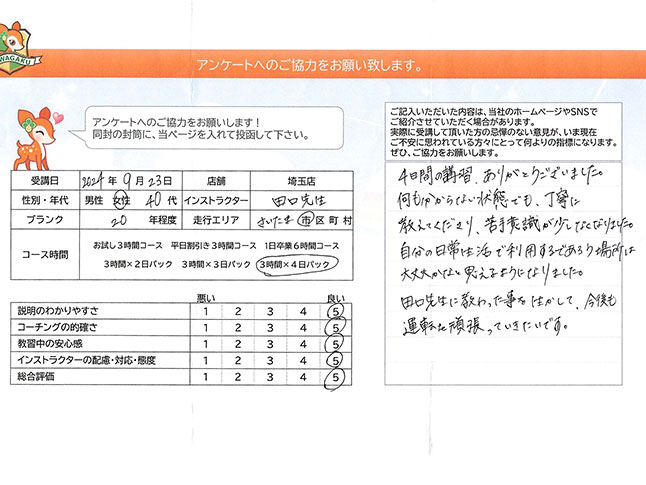 WAGAKU
アンケートへのご協力をお願い致します。
アンケートへのご協力をお願いします！
同封の封筒に、当ページを入れて投函して下さい。
受講日 2024年 9月 23日 店舗 埼玉店
性別・年代 男性 女性 40代 インストラクター 田口先生
ブランク 20 年程度 走行エリア さいたま 市区町村
コース時間
お試し3時間コース 平日割引き3時間コース 1日卒業6時間コース
3時間×2日パック 3時間×3日パック 3時間×4日パック
悪い 良い
説明のわかりやすさ 1 2 3 4 5
コーチングの的確さ 1 2 3 4 5
教習中の安心感 1 2 3 4 5
インストラクターの配慮・対応・態度 1 2 3 4 5
総合評価 1 2 3 4 5
ご記入いただいた内容は、当社のホームページやSNSで
ご紹介させていただく場合があります。
実際に受講して頂いた方の忌憚のない意見が、いま現在
ご不安に思われている方々にとって何よりの指標になります。
ぜひ、ご協力をお願いします。
4日間の講習、ありがとうございました。
何も分からない状態でも、丁寧に
教えてくださり、苦手意識が少しなくなりました。
自分の日常生活で利用するであろう場所は
大丈夫かなと思えるようになりました。
田口先生に教わった事を活かして、今後も
運転を頑張っていきたいです。